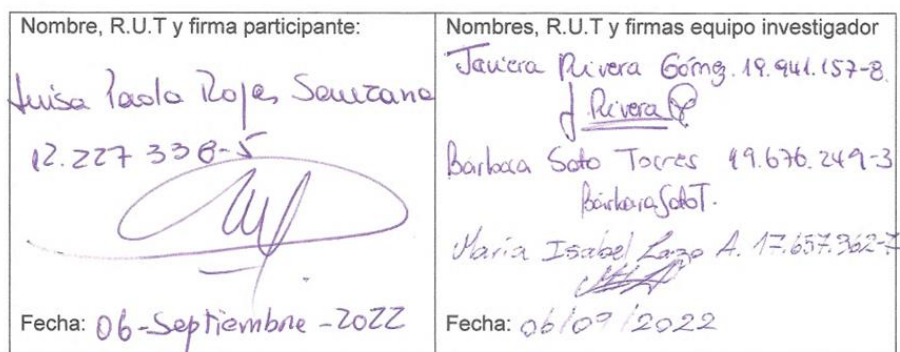 Nombre, R.U.T y firma participante:
Luisa Paola Rojas
12.227 338-5
Fecha: 06-Septiembre-2022
Nombres, R.U.T y firmas equipo investigador
Javiera Rivera Gómez. 19.941.157-8.
J Rivera
Bárbara Soto Torres 19.676.249-3
Bárbara Soto T.
María Isabel Lazo A. 17.657.362-7
Fecha: 06/09/2022